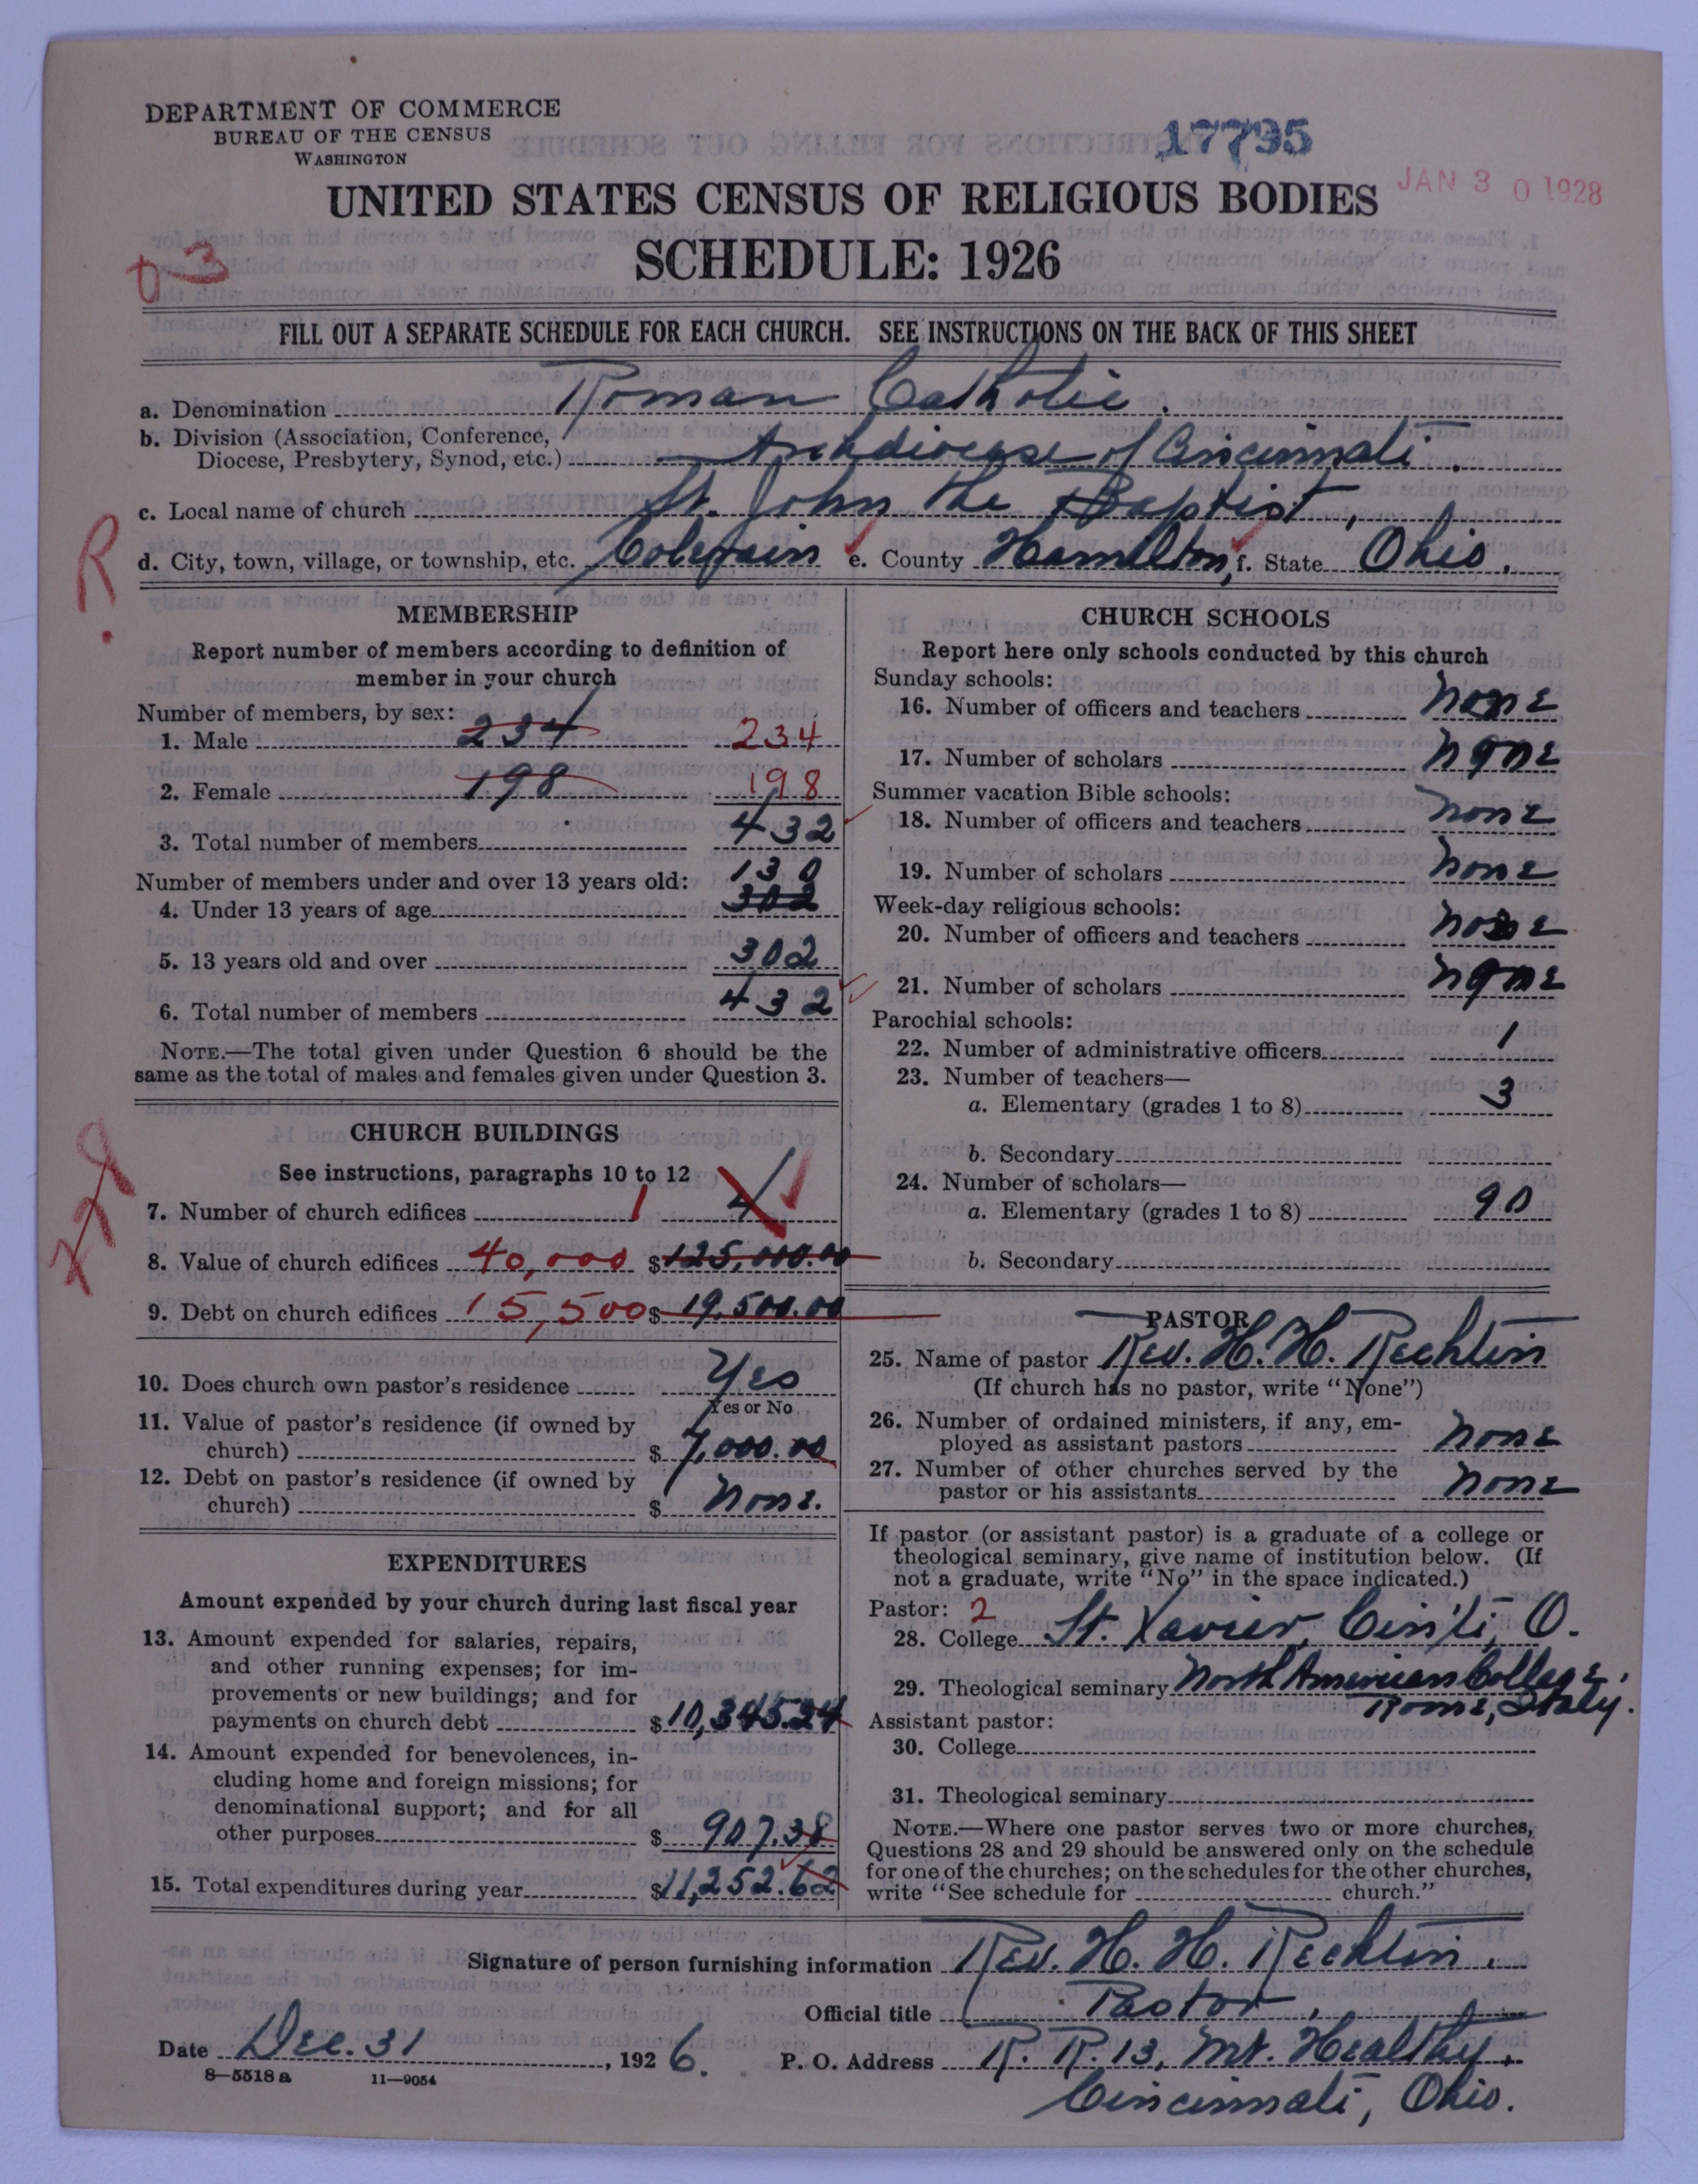 DEPARTMENT OF COMMERCE
BUREAU OF THE CENSUS
WASHINGTON
17795
JAN 30 1928
UNITED STATES CENSUS OF RELIGIOUS BODIES
SCHEDULE: 1926
FILL OUT A SEPARATE SCHEDULE FOR EACH CHURCH. SEE INSTRUCTIONS ON THE BACK OF THIS SHEET
a. Denomination Roman Catholic.
b. Division (Association, Conference,
Diocese, Presbytery, Synod, etc.) Archdiocese of Cincinnati.
c. Local name of church St. John the Baptist,
R.
d. City, town, village, or township, etc. Colerain e. County Hamilton, f. State Ohio.
MEMBERSHIP
Report number of members according to definition of
member in your church
Number of members, by sex:
1. Male 234 234
2. Female 198 198
3. Total number of members 432
Number of members under and over 13 years old: 130
4. Under 13 years of age 302
5. 13 years old and over 302
6. Total number of members 432
NOTE.—The total given under Question 6 should be the
same as the total of males and females given under Question 3.
CHURCH BUILDINGS
See instructions, paragraphs 10 to 12
7. Number of church edifices 1 4
8. Value of church edifices 40,000 $125,000.00
9. Debt on church edifices 15,500 $19,500.00
10. Does church own pastor's residence Yes
Yes or No
11. Value of pastor's residence (if owned by
church) $ 7,000.00
12. Debt on pastor's residence (if owned by
church) $ None.
EXPENDITURES
Amount expended by your church during last fiscal year
13. Amount expended for salaries, repairs,
and other running expenses; for im-
provements or new buildings; and for
payments on church debt $10,345.24
14. Amount expended for benevolences, in-
cluding home and foreign missions; for
denominational support; and for all
other purposes $ 907.38
15. Total expenditures during year $11,252.62
CHURCH SCHOOLS
Report here only schools conducted by this church
Sunday schools:
16. Number of officers and teachers None
17. Number of scholars None
Summer vacation Bible schools:
18. Number of officers and teachers None
19. Number of scholars None
Week-day religious schools:
20. Number of officers and teachers None
21. Number of scholars None
Parochial schools:
22. Number of administrative officers 1
23. Number of teachers—
a. Elementary (grades 1 to 8) 3
b. Secondary
24. Number of scholars—
a. Elementary (grades 1 to 8) 90
b. Secondary
PASTOR
25. Name of pastor Rev. H. H. Rechtin
(If church has no pastor, write "None")
26. Number of ordained ministers, if any, em-
ployed as assistant pastors None
27. Number of other churches served by the
pastor or his assistants None
If pastor (or assistant pastor) is a graduate of a college or
theological seminary, give name of institution below. (If
not a graduate, write "No" in the space indicated.)
Pastor: 2
28. College St. Xavier, Cin'ti, O.
29. Theological seminary North American College,
Rome, Italy.
Assistant pastor:
30. College
31. Theological seminary
NOTE.—Where one pastor serves two or more churches,
Questions 28 and 29 should be answered only on the schedule
for one of the churches; on the schedules for the other churches,
write "See schedule for church."
Signature of person furnishing information Rev. H. H. Rechtin.
Official title Pastor,
Date Dec. 31, 1926. P. O. Address R. R. 13, Mt. Healthy,
8—5518a 11—9054
Cincinnati, Ohio.